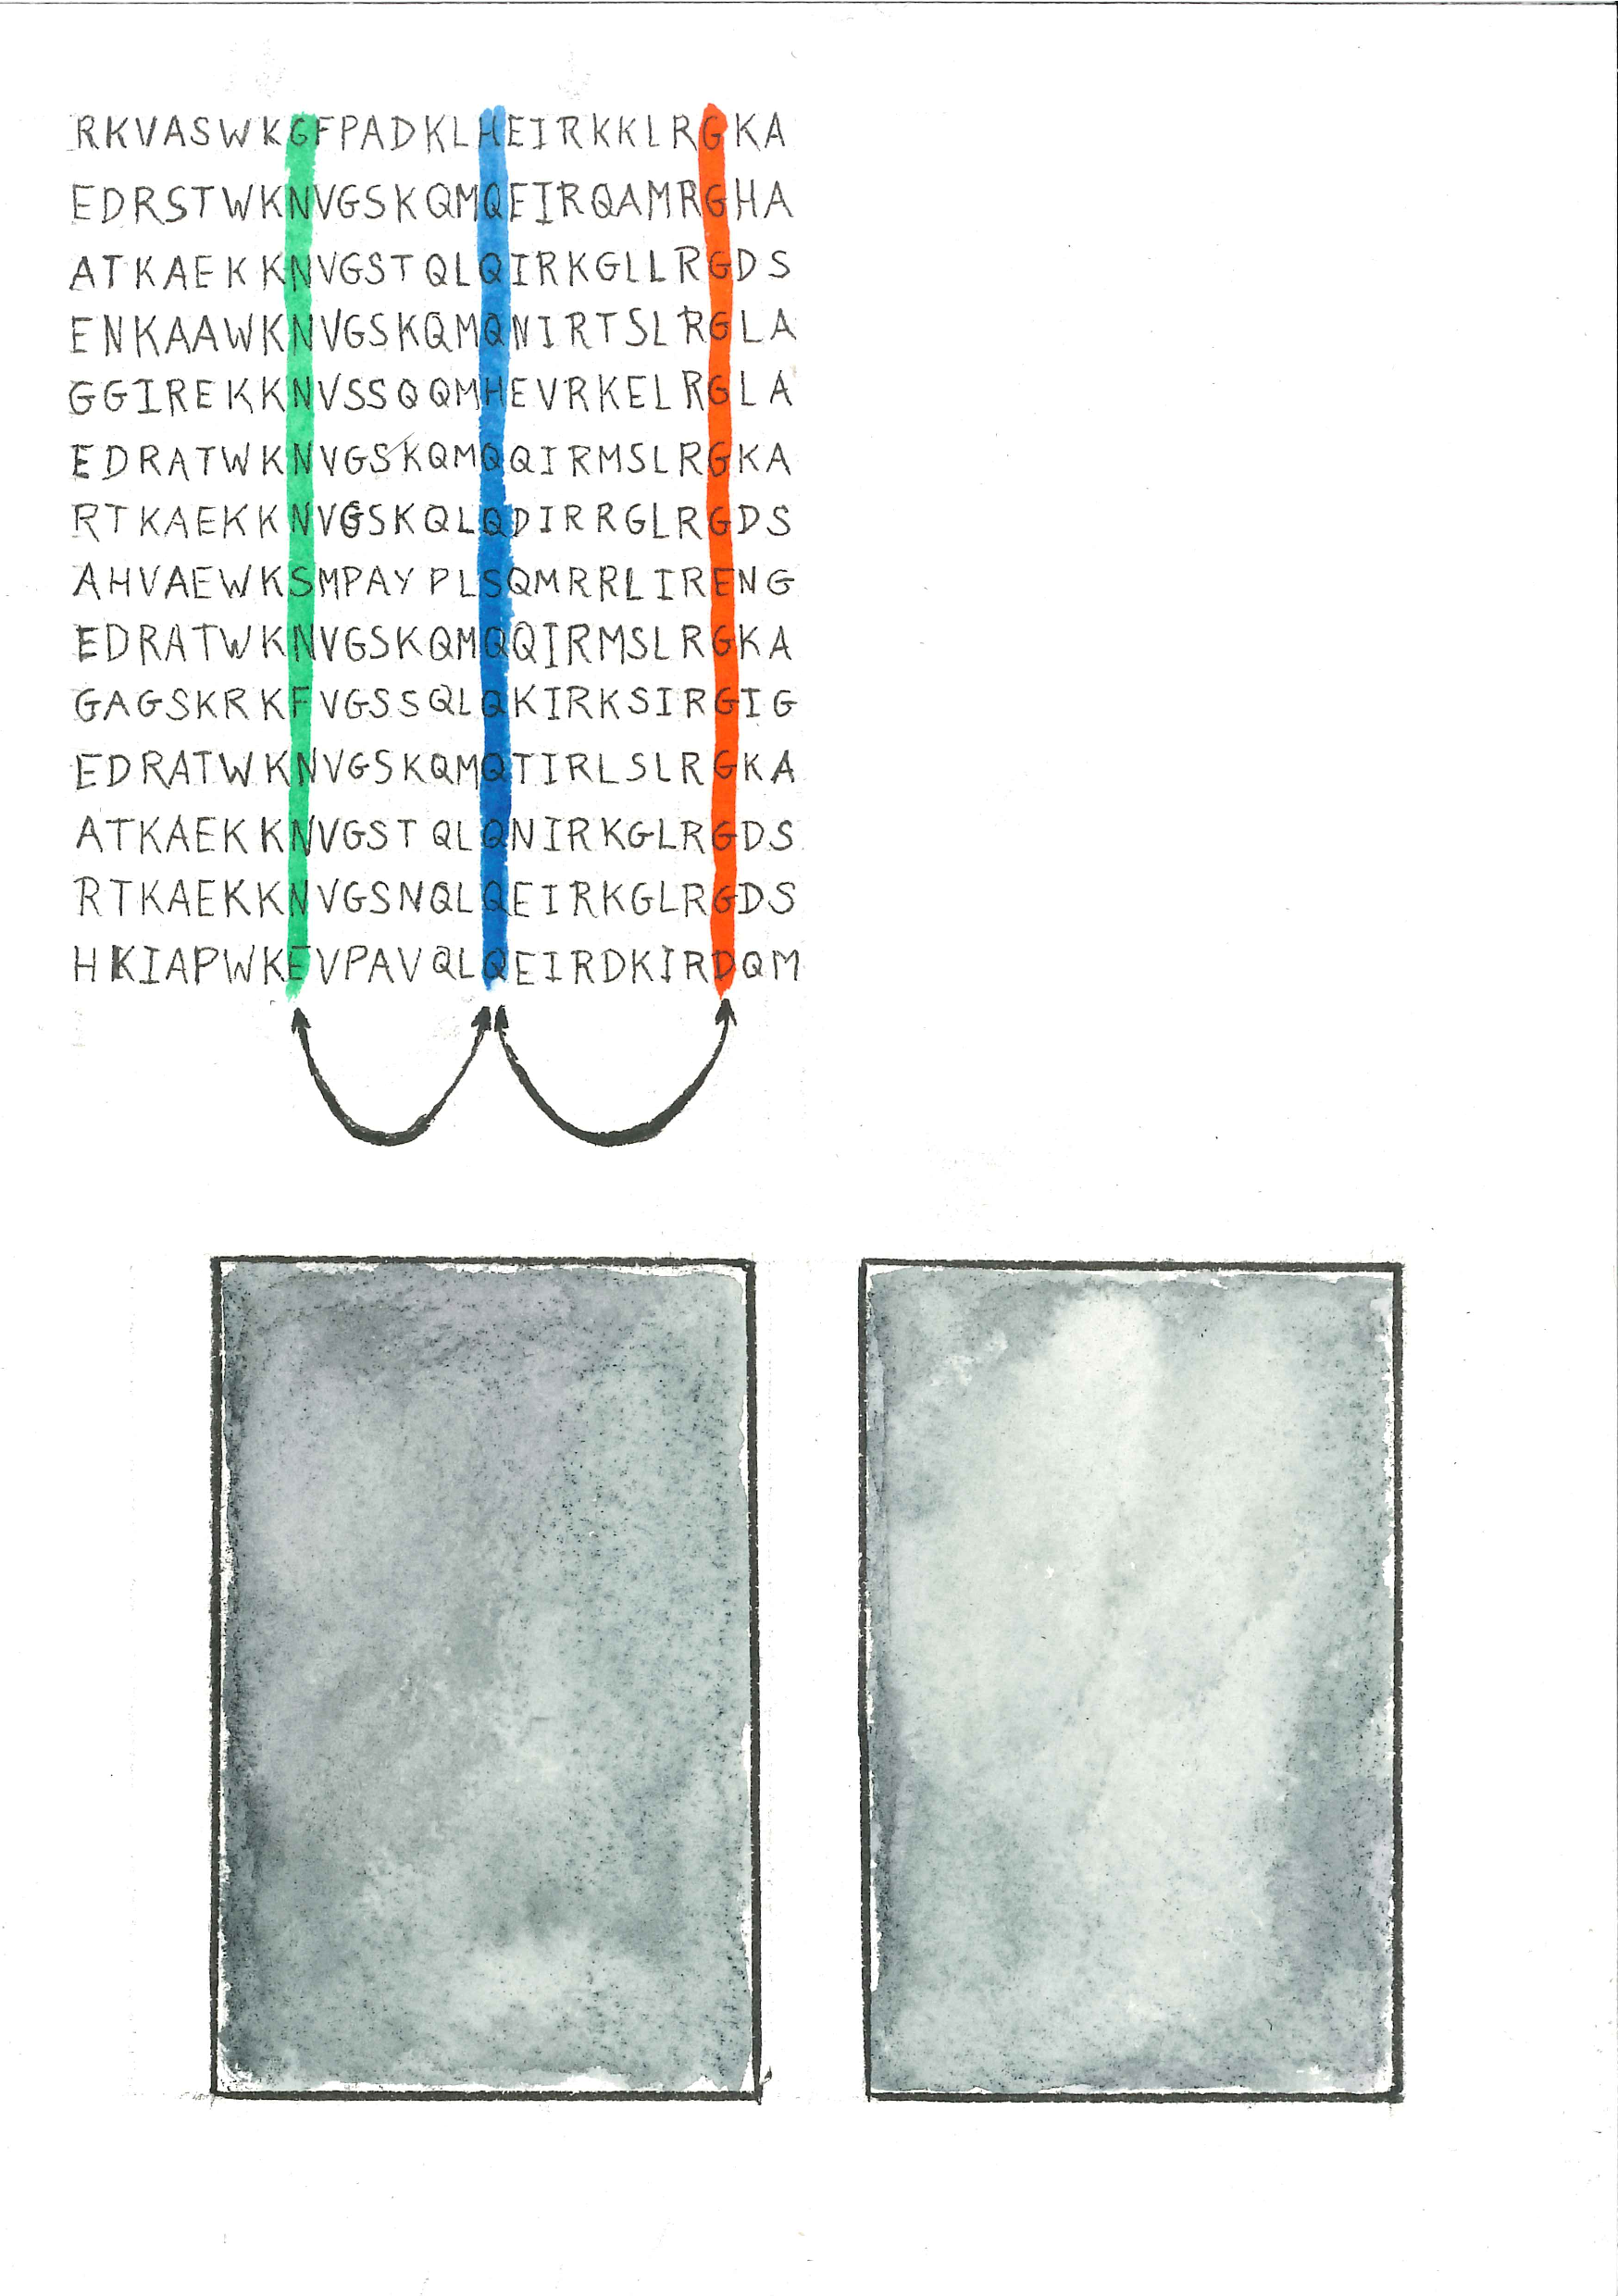 RKVASWKGFPADKLHEIRKKLRGKA
EDRSTWKNVGSKQMQEIRQAMRGHA
ATKAEKKNVGSTQLQIRKGLLRGDS
ENKAAWKNVGSKQMQNIRTSLRGLA
GGIREKKNVSSQQMHEVRKELRGLA
EDRATWKNVGSKQMQQIRMSLRGKA
RTKAEKKNVGSKQLQDIRRGLRGDS
AHVAEWKSMPAYPLSQMRRLIRENG
EDRATWKNVGSKQMQQIRMSLRGKA
GAGSKRKFVGSSQLQKIRKSIRGIG
EDRATWKNVGSKQMQTIRLSLRGKA
ATKAEKKNVGSTQLQNIRKGLRGDS
RTKAEKKNVGSNQLQEIRKGLRGDS
HKIAPWKEVPAVQLQEIRDKIRDQM